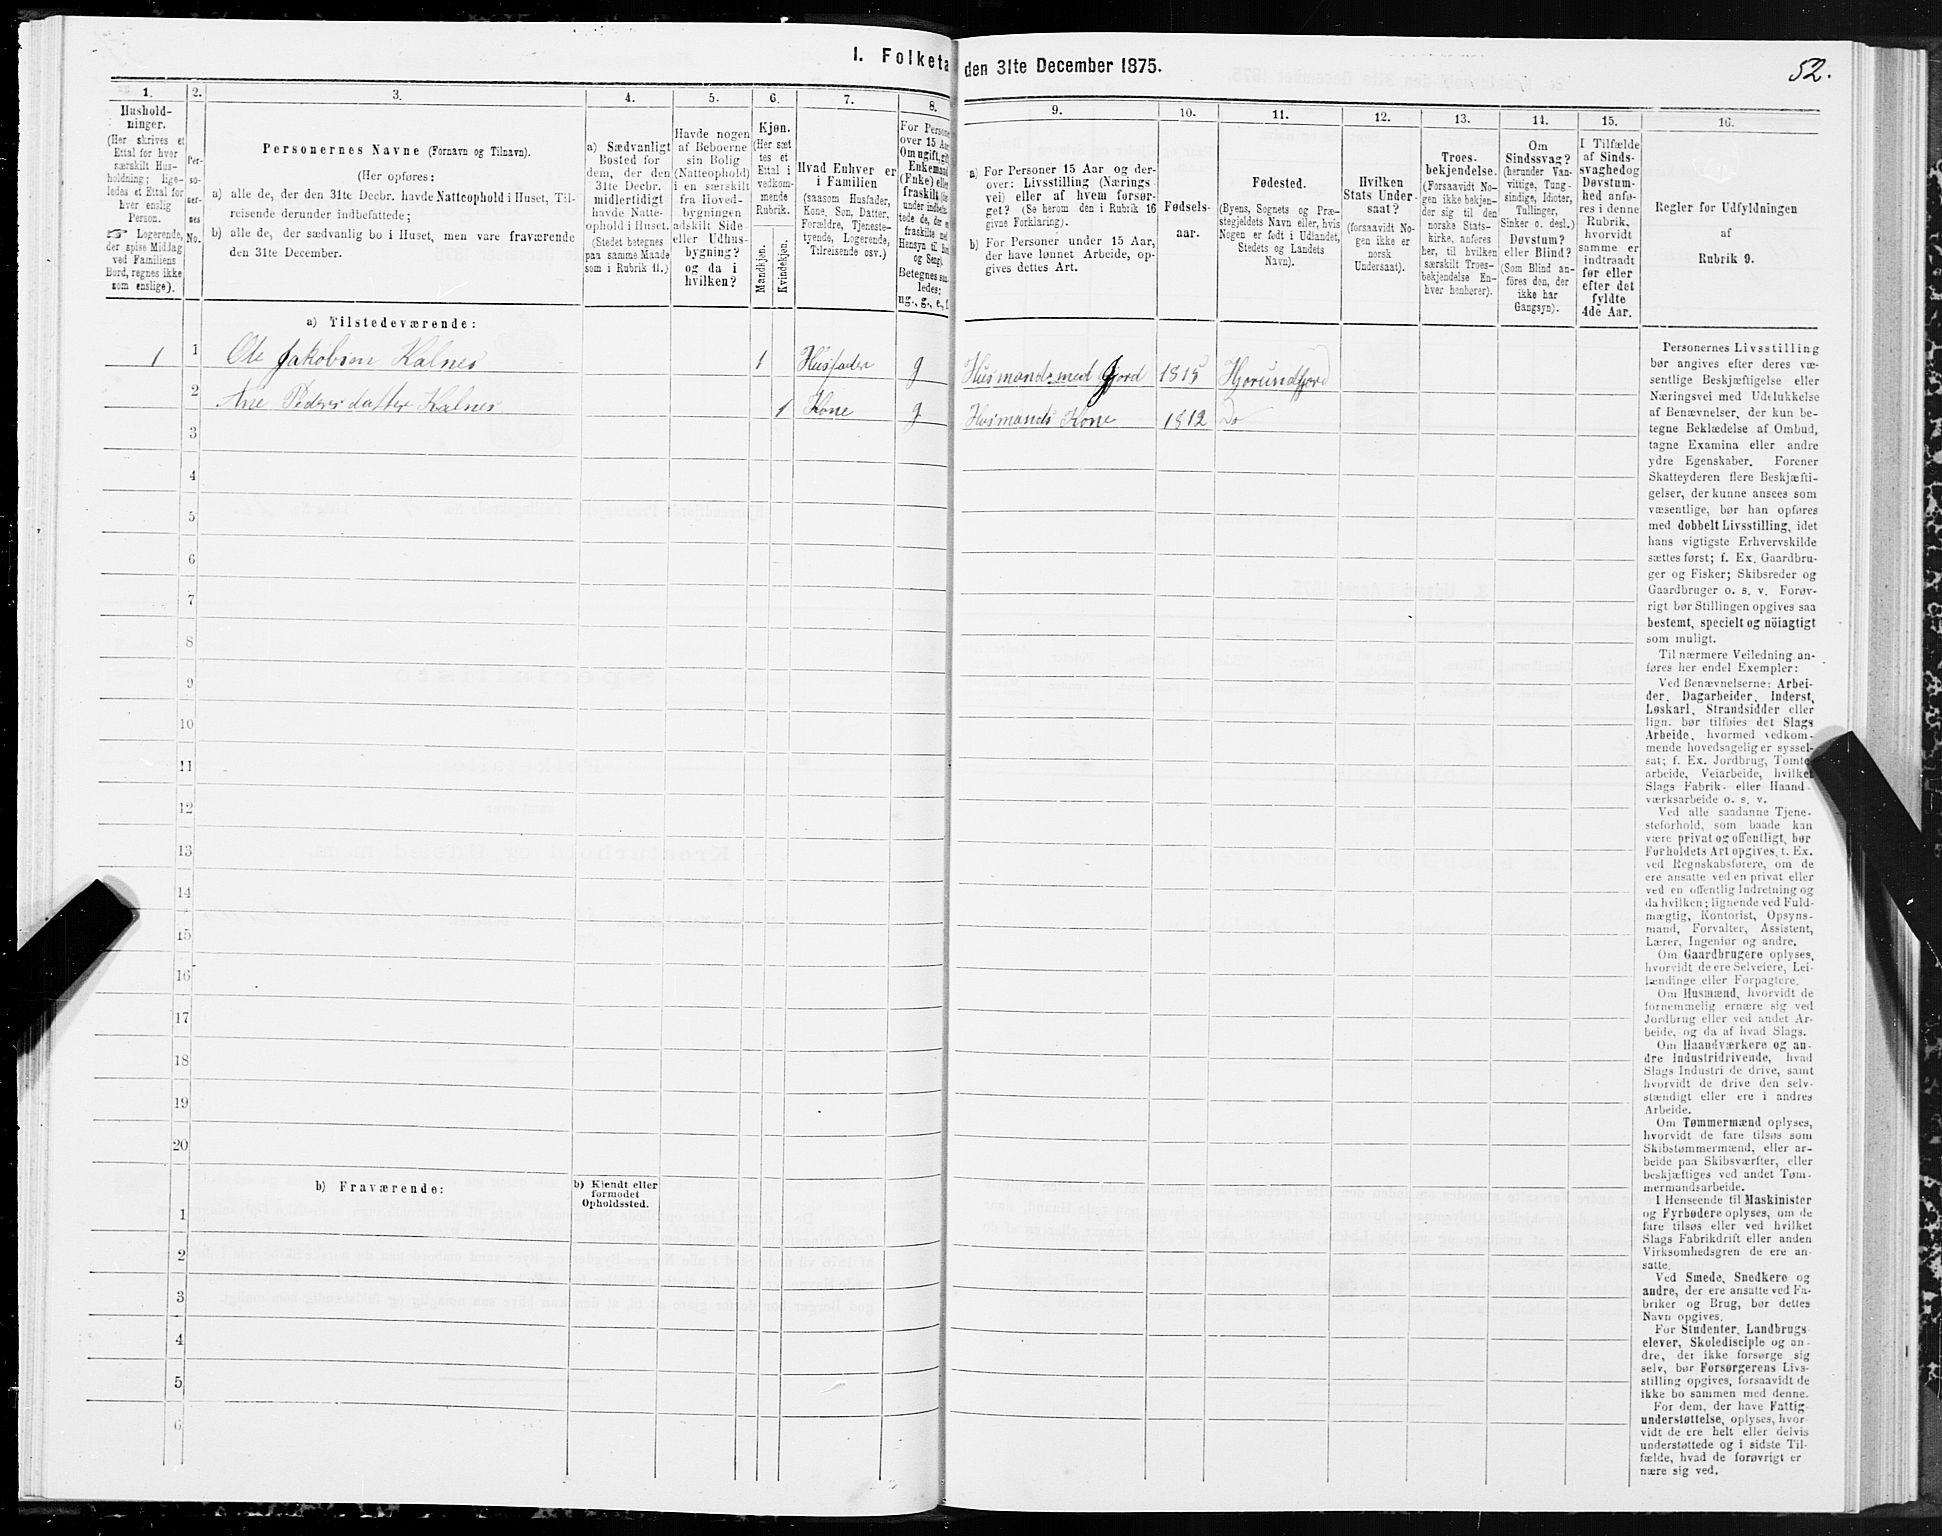 I. Folketa
den 31te December 1875.
52.
1.
Hushold-
ninger.
(Her skrives et
Ettal for hver
særskilt Hus-
holdning; lige-
ledes et Ettal for
hver enslig
Person.
☞ Logerende,
der spise Middag
ved Familiens
Bord, regnes ikke
som enslige).
2.
Per-
so-
ner-
nes
No.
3.
Personernes Navne (Fornavn og Tilnavn).
(Her opføres:
a) alle de, der den 31te Decbr. havde Natteophold i Huset, Til-
reisende derunder indbefattede;
b) alle de, der sædvanlig bo i Huset, men vare fraværende
den 31te December.
4.
a) Sædvanligt
Bosted for
dem, der den
31te Decbr.
midlertidigt
havde Natte-
ophold i Huset.
(Stedet betegnes
paa samme Maade
som i Rubrik 11.)
5.
Havde nogen
af Beboerne
sin Bolig
(Natteophold)
i en særskilt
fra Hoved-
bygningen
adskilt Side-
eller Udhus-
bygning?
og da i
hvilken?
6.
Kjøn.
(Her sæt
tes et
Ettal i
vedkom-
mende
Rubrik.
Mandkjøn.
Kvindekjøn.
7.
Hvad Enhver er
i Familien
(saasom Husfader,
Kone, Søn, Datter,
Forældre, Tjeneste-
tyende, Logerende,
Tilreisende osv.)
8.
For Persone
over 15 Aa
Om ugift, gif
Enkemand
(Enke) elle
fraskilt (de
under indbefat-
tede de, der er
fraskilte med
Hensyn til Bo
og Seng).
Betegnes saa
ledes:
ug., g., e., f.
9.
a) For Personer 15 Aar og der-
over: Livsstilling (Nærings
vei) eller af hvem forsør-
get? (Se herom den i Rubrik 16
givne Forklaring).
b) For Personer under 15 Aar,
der have lønnet Arbeide, op-
gives dettes Art.
10.
Fødsels-
aar.
11.
Fødested.
(Byens, Sognets og Præ-
stegjeldets Navn eller, hvis
Nogen er født i Udlandet,
Stedets og Landets
Navn).
12.
Hvilken
Stats Under-
saat?
(forsaavidt No-
gen ikke er
norsk
Undersaat).
13.
Troes-
bekjendelse.
(Forsaavidt No-
gen ikke bekjen-
der sig til den
norske Stats-
kirke, anføres
her, til hvilken
særskilt Troes-
bekjendelse En-
hver henhører).
14.
Om
Sindssvag?
(herunder Van-
vittige, Tung-
sindige, Idioter,
Tullinger,
Sinker o. desl.)
Døvstum?
eller Blind?
(Som Blind an-
føres den, der
ikke har
Gangsyn).
15.
I Tilfælde
af Sinds-
svaghed og
Døvstum-
hed anfø-
res i denne
Rubrik,
hvorvidt
samme er
indtraadt
før eller
efter det
fyldte
4de Aar.
16.
Regler for Udfyldningen
af
Rubrik 9.
a) Tilstedeværende:
1 1 Ole Jakobsen Kalnes 1 Husfader g Husmand med Jord 1815 Hjorundfjord
2 Ane Pedersdatter Kalnes 1 Kone g Husmands Kone 1812 Do
3
4
5
6
7
8
9
10
11
12
13
14
15
16
17
18
19
20
b) Fraværende:
b) Kjendt eller
formodet
Opholdssted.
1
2
3
4
5
6
Personernes Livsstilling
bør angives efter deres væ-
sentlige Beskjæftigelse eller
Næringsvei med Udelukkelse
af Benævnelser, der kun be-
tegne Beklædelse af Ombud,
tagne Examina eller andre
ydre Egenskaber. Forener
Skatteyderen flere Beskjæfti-
gelser, der kunne ansees som
væsentlige, bør han opføres
med dobbelt Livsstilling, idet
hans vigtigste Erhvervskilde
sættes først; f. Ex. Gaardbru-
ger og Fisker; Skibsreder og
Gaardbruger o. s. v. Forøv-
rigt bør Stillingen opgives saa
bestemt, specielt og nöiagtigt
som muligt.
Til nærmere Veiledning an-
føres her endel Exempler:
Ved Benævnelserne: Arbei-
der, Dagarbeider, Inderst,
Løskarl, Strandsidder eller
lign. bør tilføies det Slags
Arbeide, hvormed vedkom-
mende hovedsagelig er syssel-
sat; f. Ex. Jordbrug, Tomte-
arbeide, Veiarbeide, hvilket
Slags Fabrik- eller Haand-
værksarbeide o. s. v.
Ved alle saadanne Tjene-
steforhold, som baade kan
være privat og offentligt, bør
Forholdets Art opgives, t. Ex.
ved Regnskabsførere, om de
ere ansatte ved en privat eller
ved en offentlig Indretning og
da hvilken; lignende ved Fuld-
mægtig, Kontorist, Opsyns-
mand, Forvalter, Assistent,
Lærer, Ingeniør og andre.
Om Gaardbrugere oplyses,
hvorvidt de ere Selveiere, Lei-
lændinge eller Forpagtere.
Om Husmænd, hvorvidt de
fornemmelig ernære sig ved
Jordbrug eller ved andet Ar-
beide, og da af hvad Slags.
Om Haandværkere og an-
dre Industridrivende, hvad
Slags Industri de drive, samt
hvorvidt de drive den selv-
stændigt eller ere i andres
Arbeide.
Om Tømmermænd oplyses,
hvorvidt de fare tilsøs som
Skibstømmermænd, eller ar-
beide paa Skibsværfter, eller
beskjæftiges ved andet Tøm-
mermandsarbeide.
I Henseende til Maskinister
og Fyrbødere oplyses, om de
fare tilsøs eller ved hvilket
Slags Fabrikdrift eller anden
Virksomhedsgren de ere an-
satte.
Ved Smede, Snedkere og
andre, der ere ansatte ved Fa-
briker og Brug, bør dettes
Navn opgives.
For Studenter, Landbrugs-
elever, Skoledisciple og an-
dre, der ikke forsørge sig
selv, bør Forsørgerens Livs-
stilling opgives, forsaavidt de
ikke bo sammen med denne.
For dem, der have Fattig-
understøttelse, oplyses, hvor-
vidt de ere helt eller delvis
understøttede og i sidste Til-
fælde, hvad de forøvrigt er
nære sig ved.